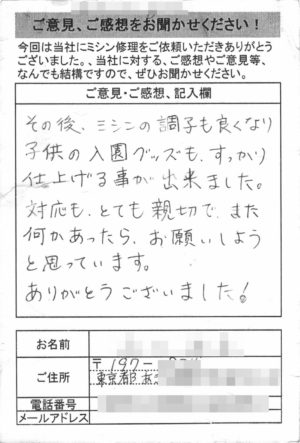 ご意見、ご感想をお聞かせください！
今回は当社にミシン修理をご依頼いただきありがとう
ございました。、当社に対する、ご感想やご意見等、
なんでも結構ですので、ぜひお聞かせください。
ご意見・ご感想、記入欄
その後、ミシンの調子も良くなり
子供の入園グッズも、すっかり
仕上げる事が出来ました。
対応も、とても親切で、また
何かあったら、お願いしよう
と思っています。
ありがとうございました！
お名前
ご住所
〒197-
東京都
電話番号
メールアドレス